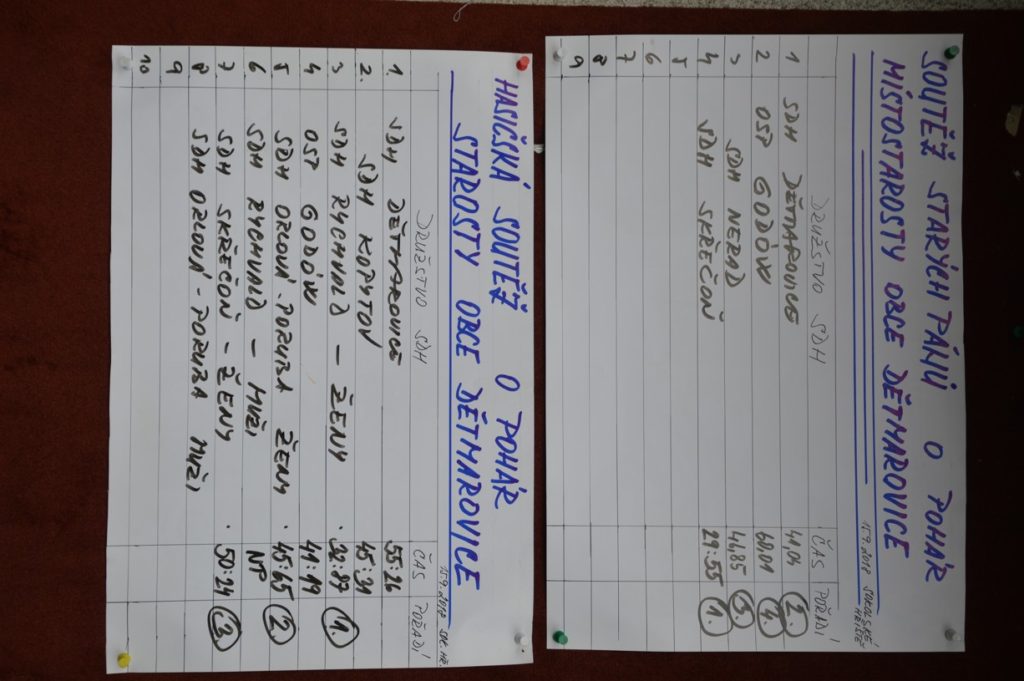 SOUTĚŽ STARÝCH PÁNŮ O POHÁR
MÍSTOSTAROSTY OBCE DĚTMAROVICE
15.9.2018 SOKOLSKÉ HŘIŠTĚ
DRUŽSTVO SDH ČAS POŘADÍ
1 SDH DĚTMAROVICE 44.04 2.
2 OSP GODÓW 60.01 4.
3 SDH NERAD 46.85 3.
4 SDH SKŘEČOŇ 29:55 1.
5
6
7
8
9
HASIČSKÁ SOUTĚŽ O POHÁR
STAROSTY OBCE DĚTMAROVICE
15.9.2018 SOK. HŘ.
DRUŽSTVO SDH ČAS POŘADÍ
1. SDH DĚTMAROVICE 55:26
2. SDH KOPYTOV 45:31
3 SDH RYCHVALD - ŽENY . 38:87 1.
4 OSP GODÓW 41:19
5 SDH ORLOVÁ - PORUBA ŽENY . 45:65 2.
6 SDH RYCHVALD - MUŽI NP
7 SDH SKŘEČOŇ - ŽENY . 50:24 3.
8 SDH ORLOVÁ - PORUBA MUŽI
9
10